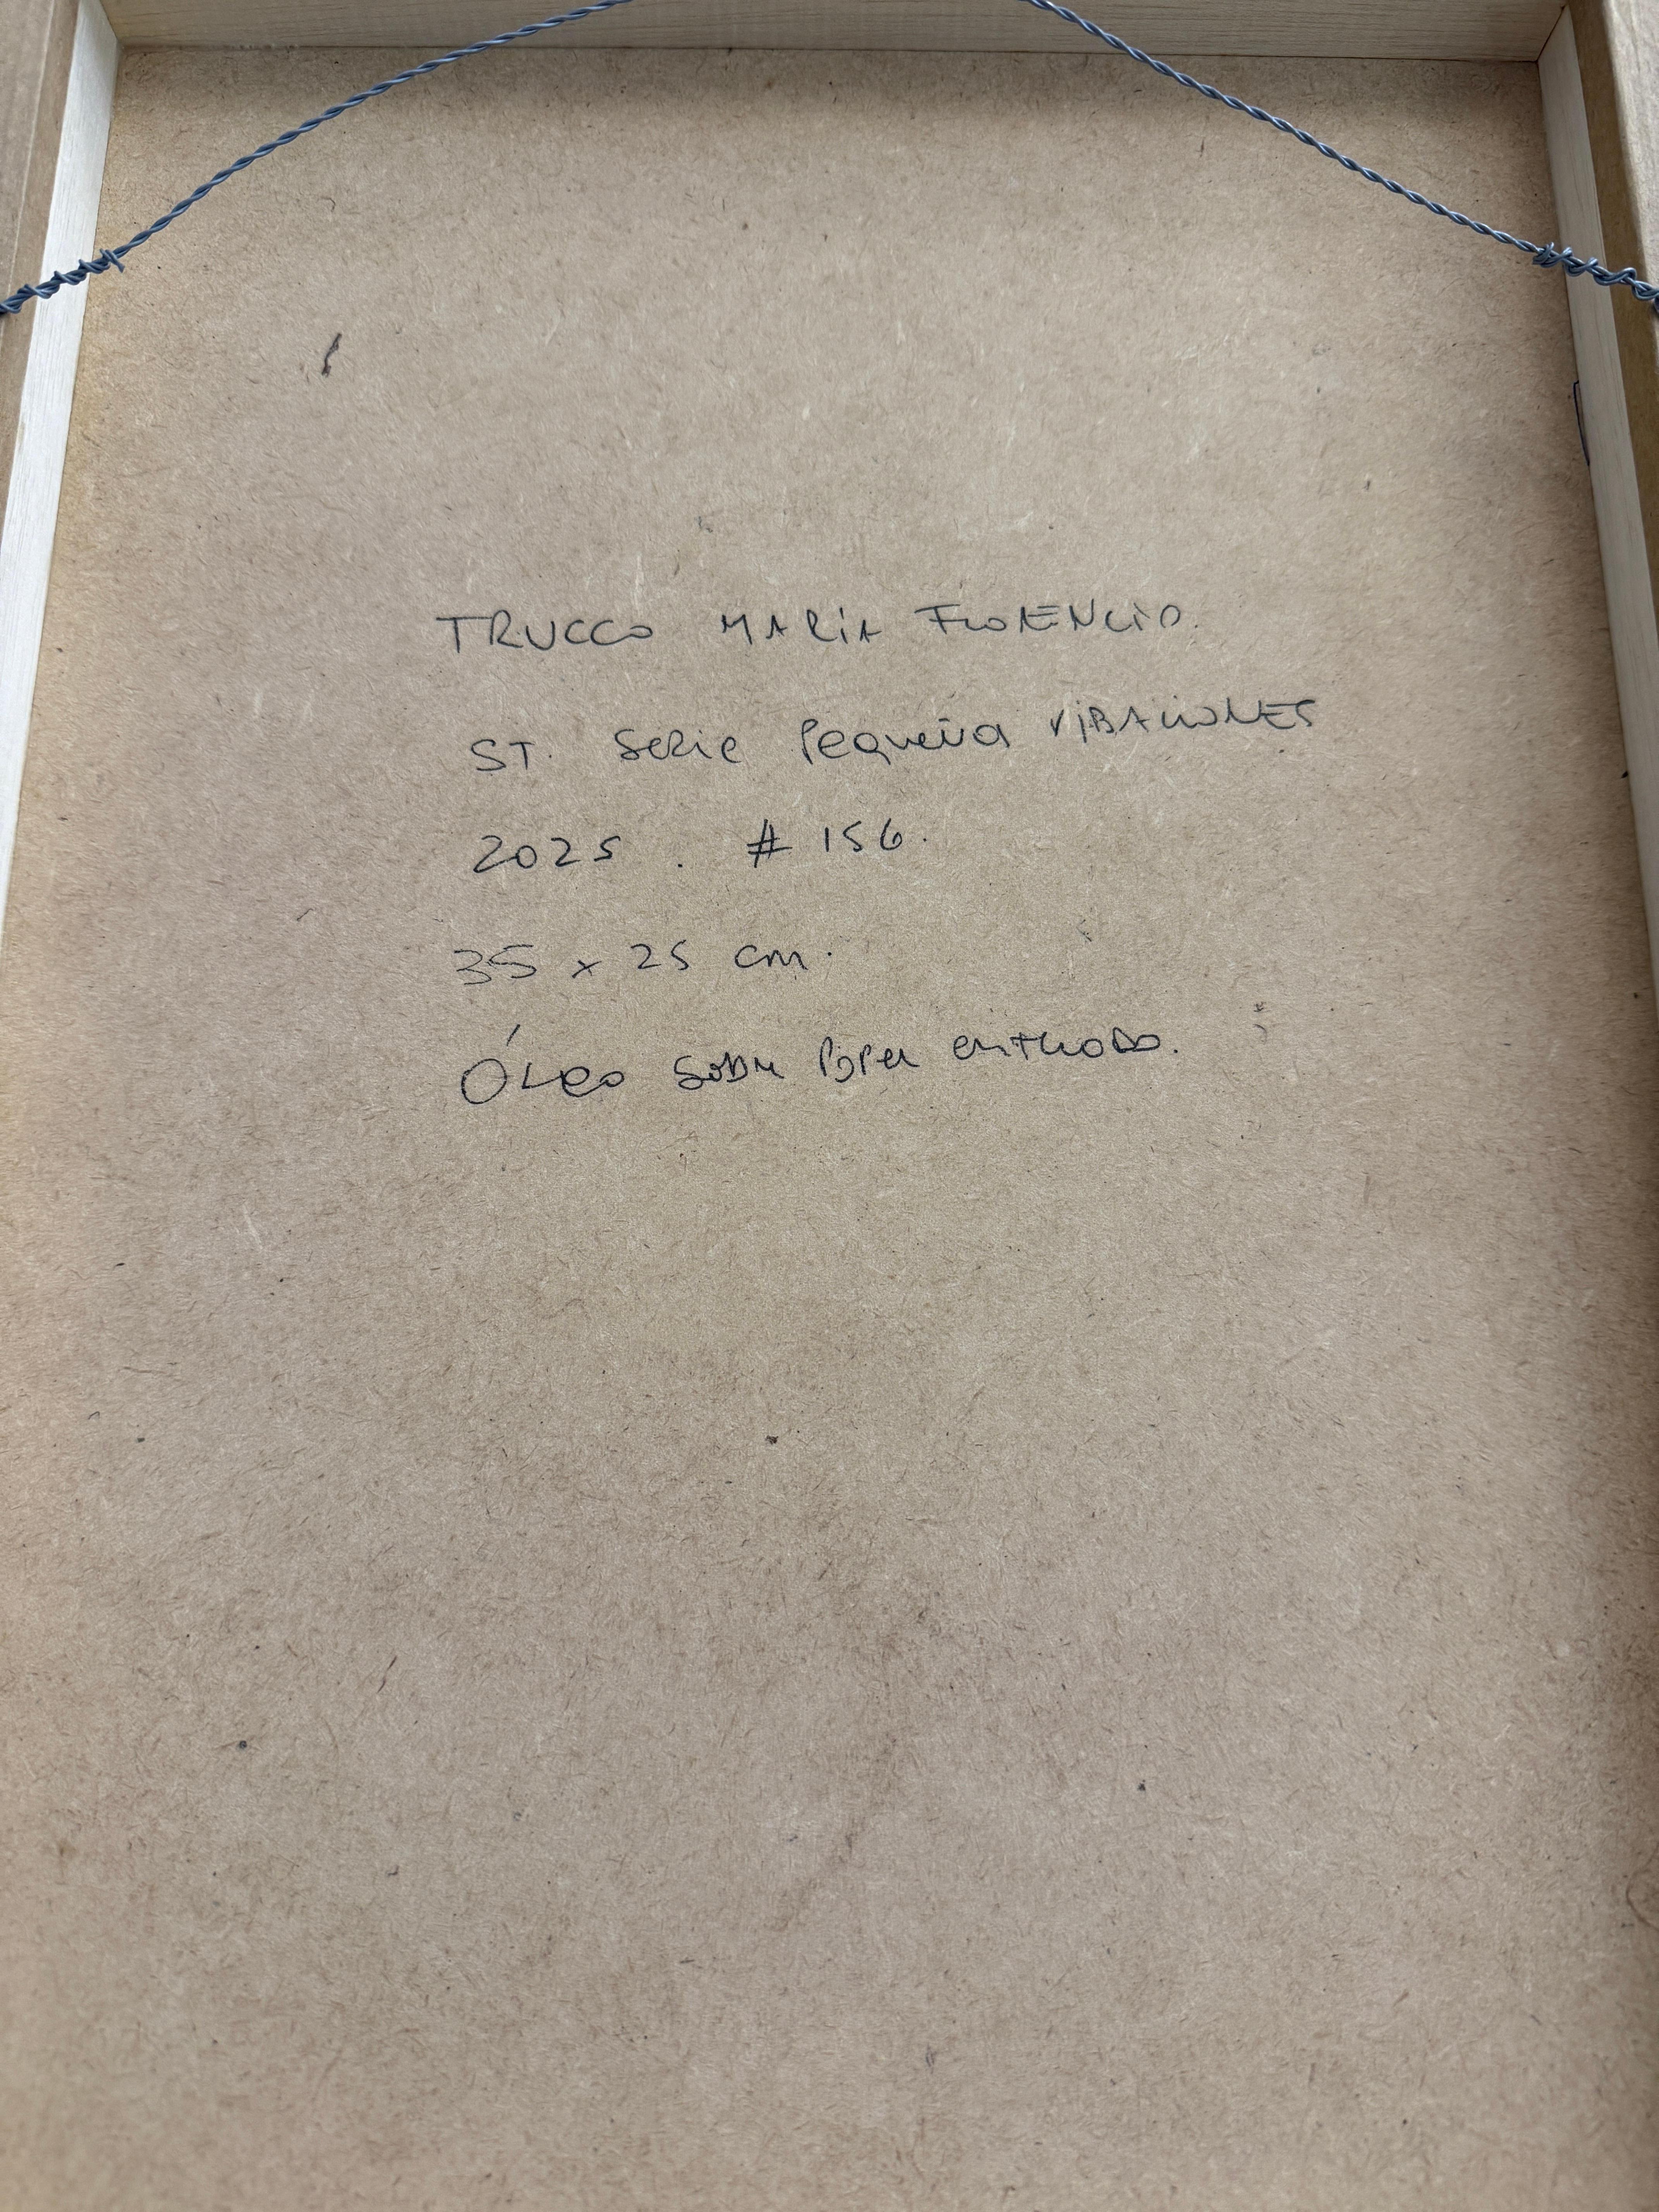 TRUCCO MARÍA FLORENCIA.
ST. Serie Pequeña VIBRACIONES
2025 . # 156.
35 x 25 cm.
ÓLeo sobre papel entelado.